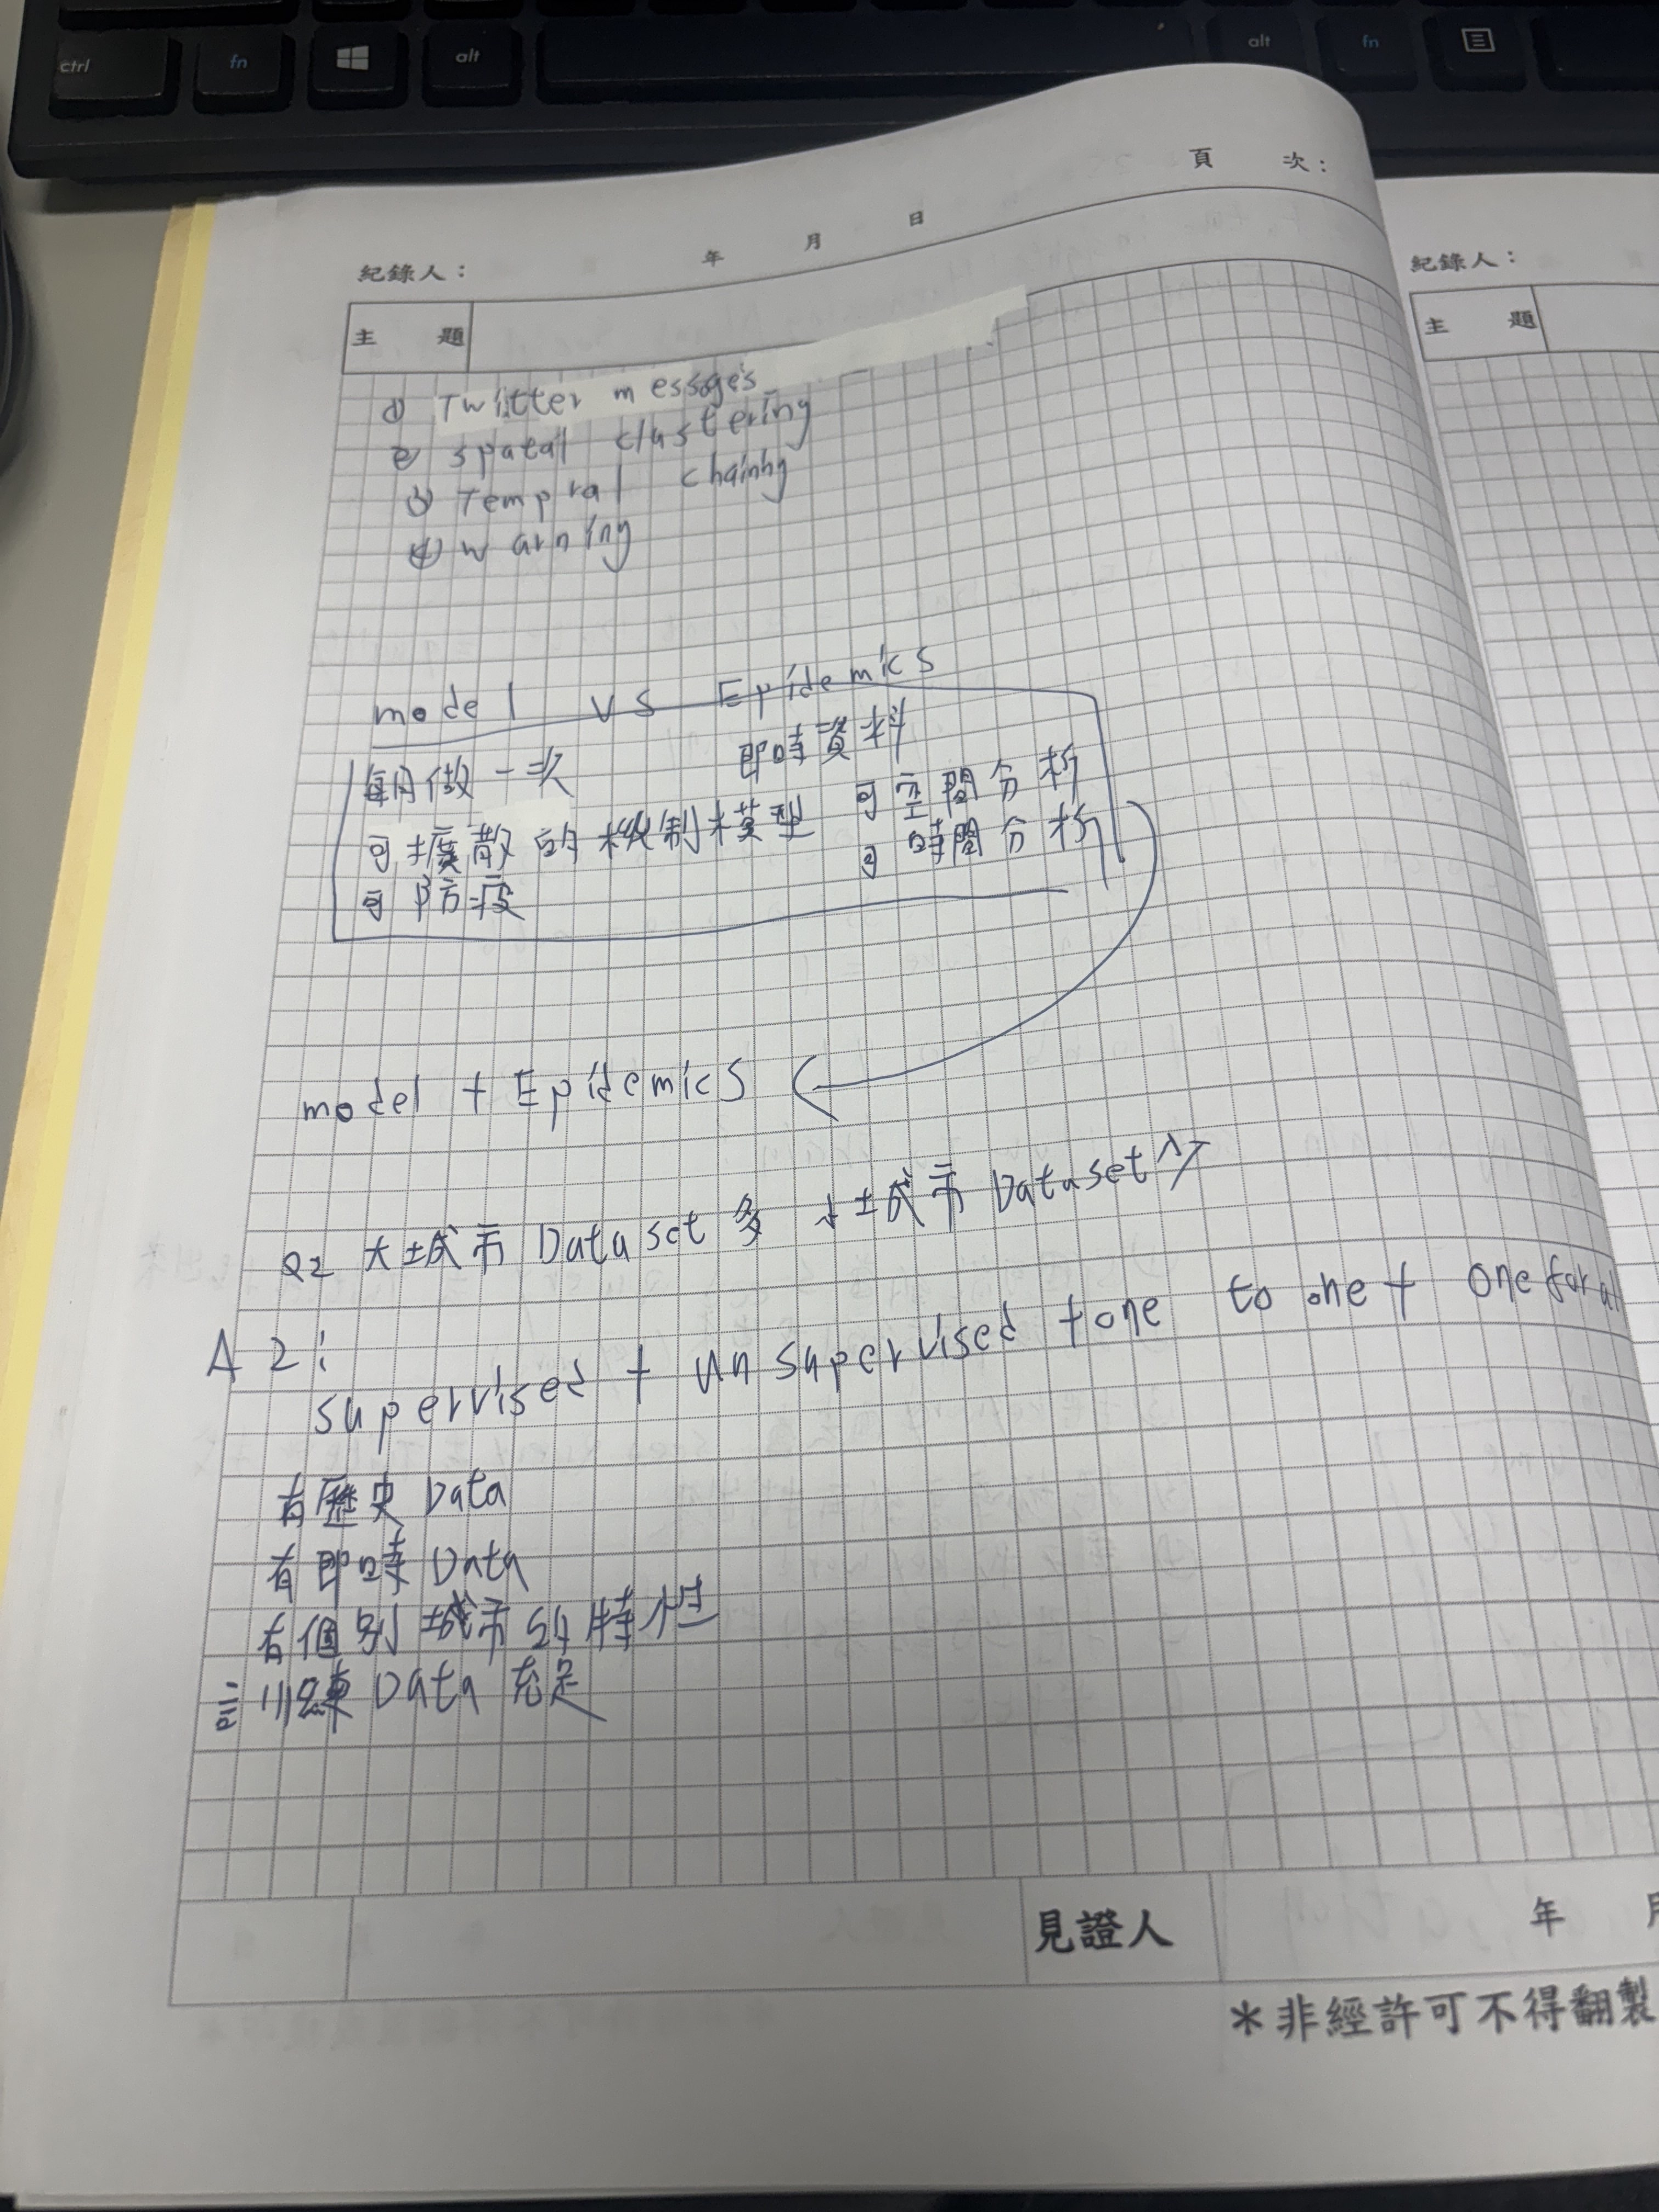 ctrl fn alt alt fn
頁 次：
紀錄人： 年 月 日
主 題
紀錄人：
主 題
① Twitter messages
② spatal clustering
③ Tempral chaining
④ warning
model vs Epidemics
每月做一次 即時資料
可擴散的機制模型 可空間分析
可防疫 可時間分析
model + Epidemics
Q2 大城市 Dataset 多 小城市 Dataset 少
A2:
supervised + unsupervised + one to one + one for all
有歷史 Data
有即時 Data
有個別城市的特性
訓練 Data 充足
見證人 年 月
＊非經許可不得翻製